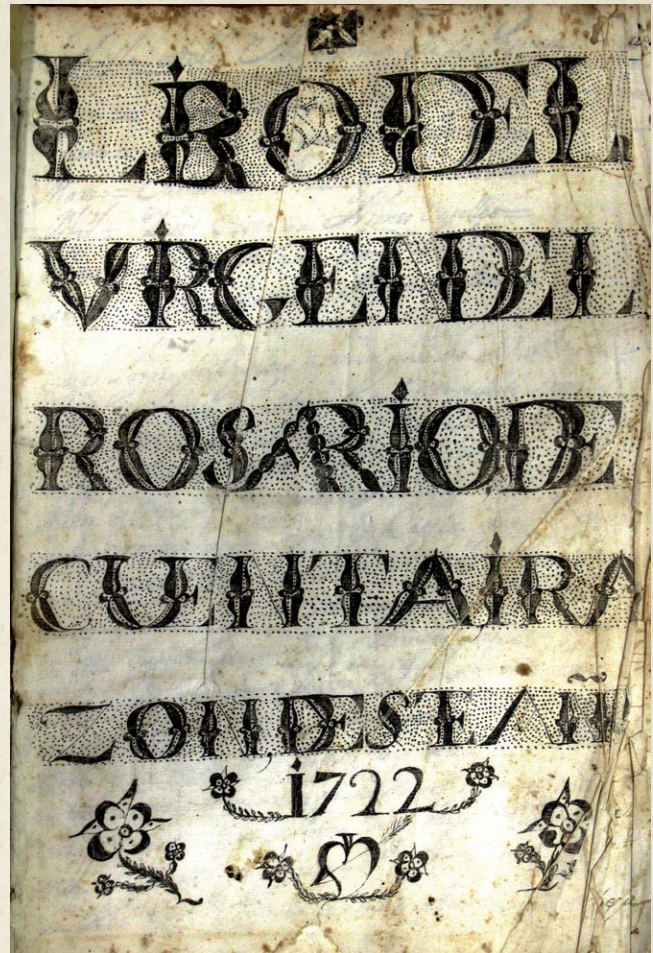 LIBRO DE L
VIRGEN DEL
ROSARIO DE
CUENTA I RA
ZON, DESTE AÑ
1722